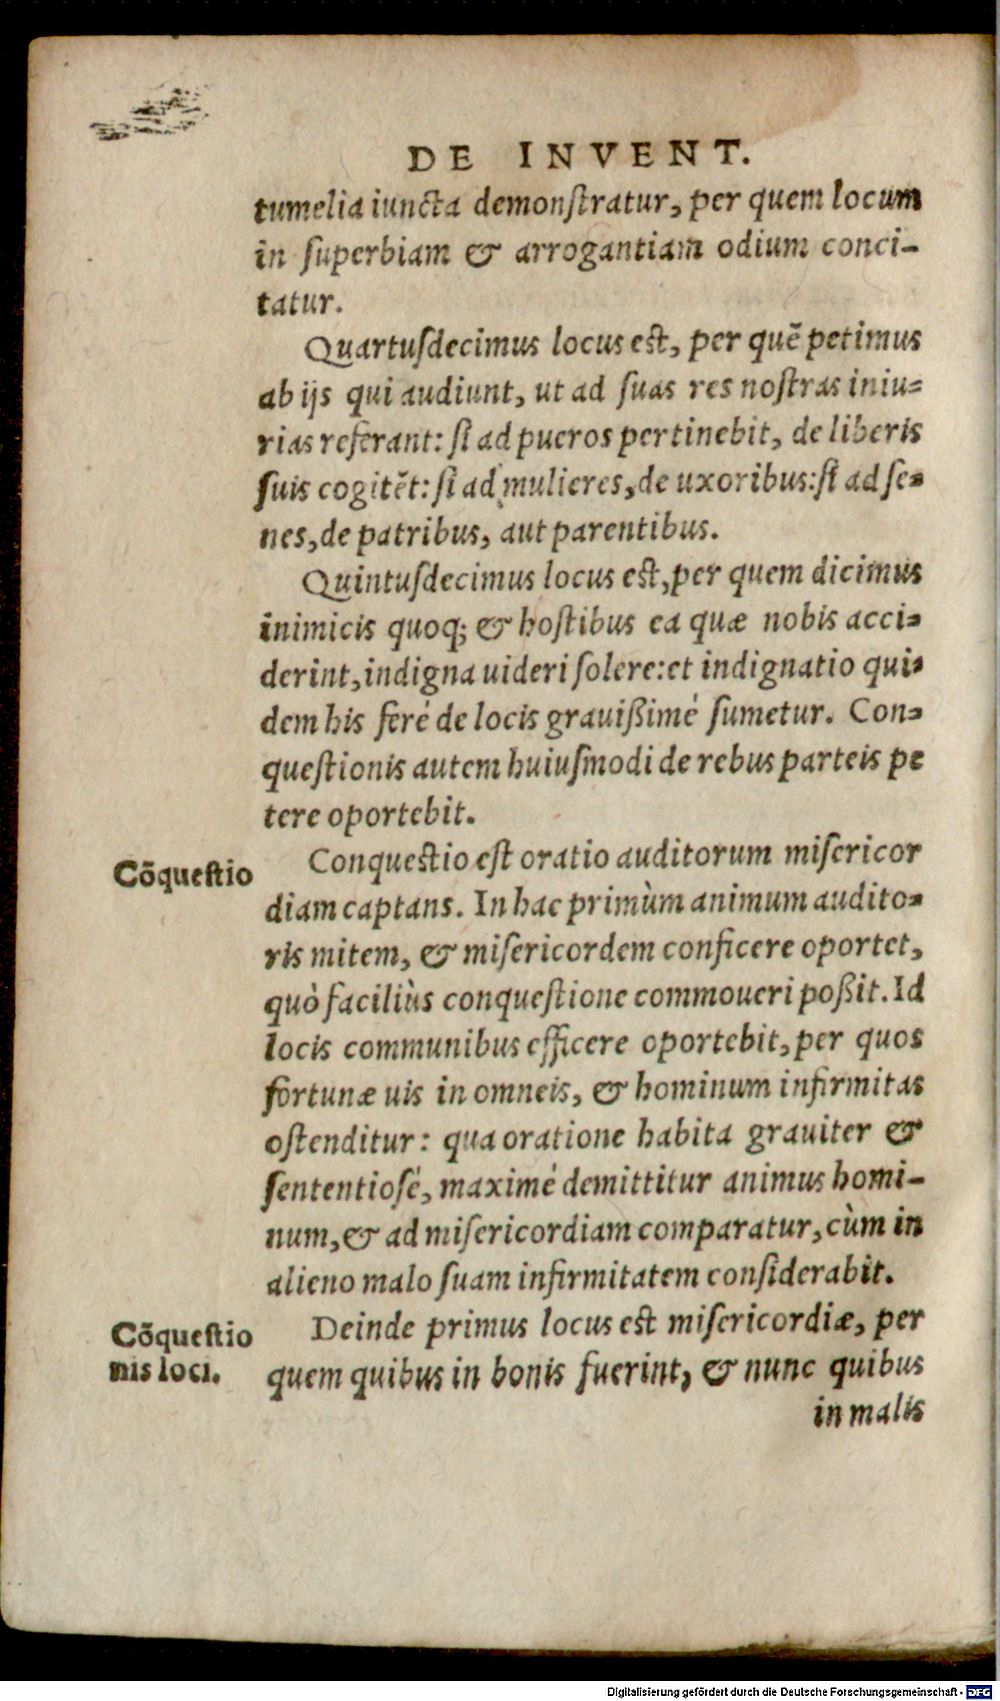 DE INVENT.
tumelia iuncta demonſtratur, per quem locum
in ſuperbiam & arrogantiam odium conci-
tatur.
Quartuſdecimus locus est, per quē petimus
ab ijs qui audiunt, ut ad ſuas res noſtras iniu-
rias referant: ſi ad pueros pertinebit, de liberis
ſuis cogitēt: ſi ad mulieres, de uxoribus: ſi ad ſe-
nes, de patribus, aut parentibus.
Quintuſdecimus locus est, per quem dicimus
inimicis quoq; & hoſtibus ea quæ nobis acci-
derint, indigna uideri ſolere: et indignatio qui-
dem his feré de locis grauißimé ſumetur. Con-
queſtionis autem huiuſmodi de rebus parteis pe
tere oportebit.
Cōqueſtio
Conqueſtio eſt oratio auditorum miſericor
diam captans. In hac primùm animum audito-
ris mitem, & miſericordem conficere oportet,
quò faciliùs conqueſtione commoueri poßit. Id
locis communibus efficere oportebit, per quos
fortunæ uis in omneis, & hominum infirmitas
oſtenditur: qua oratione habita grauiter &
ſententioſé, maximé demittitur animus homi-
num, & ad miſericordiam comparatur, cùm in
alieno malo ſuam infirmitatem conſiderabit.
Cōqueſtio
nis loci.
Deinde primus locus est miſericordiæ, per
quem quibus in bonis fuerint, & nunc quibus
in malis
Digitalisierung gefördert durch die Deutsche Forschungsgemeinschaft - DFG